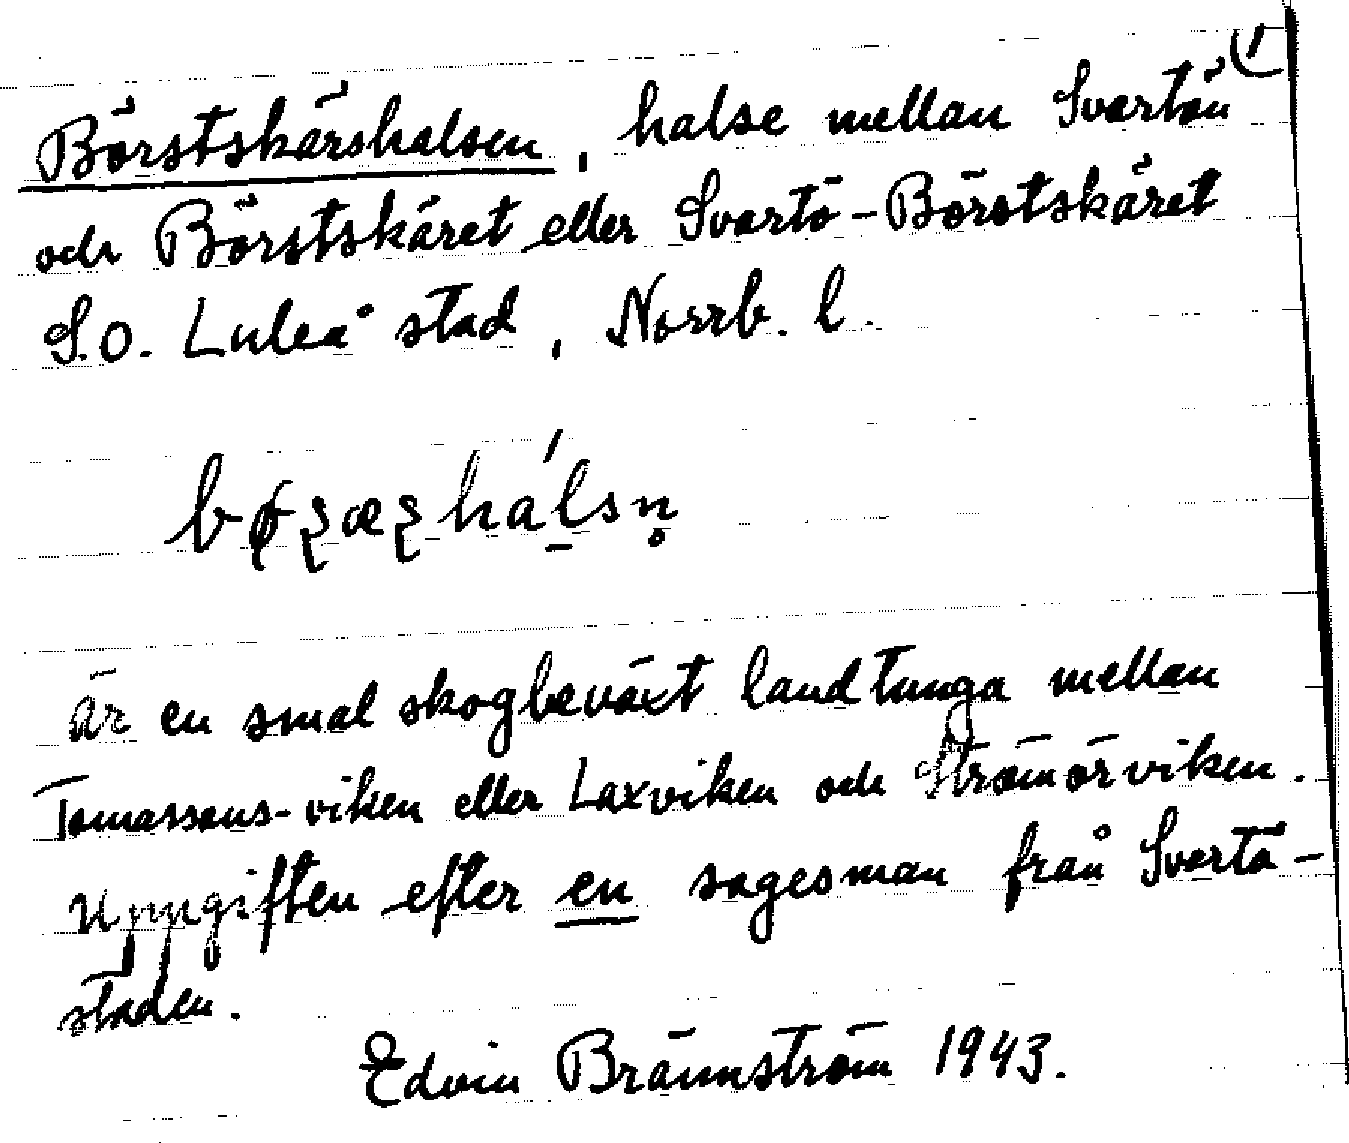 Börstskärshalsen, halse mellan Svartön
och Börstskäret eller Svartö-Börstskäret
S.O. Luleå stad, Norrb. l.
är en smal skogbeväxt landtunga mellan
Tomassons-viken eller Laxviken och Strömörviken.
Uppgiften efter en sagesman från Svartö-
staden.
Edvin Brännström 1943.